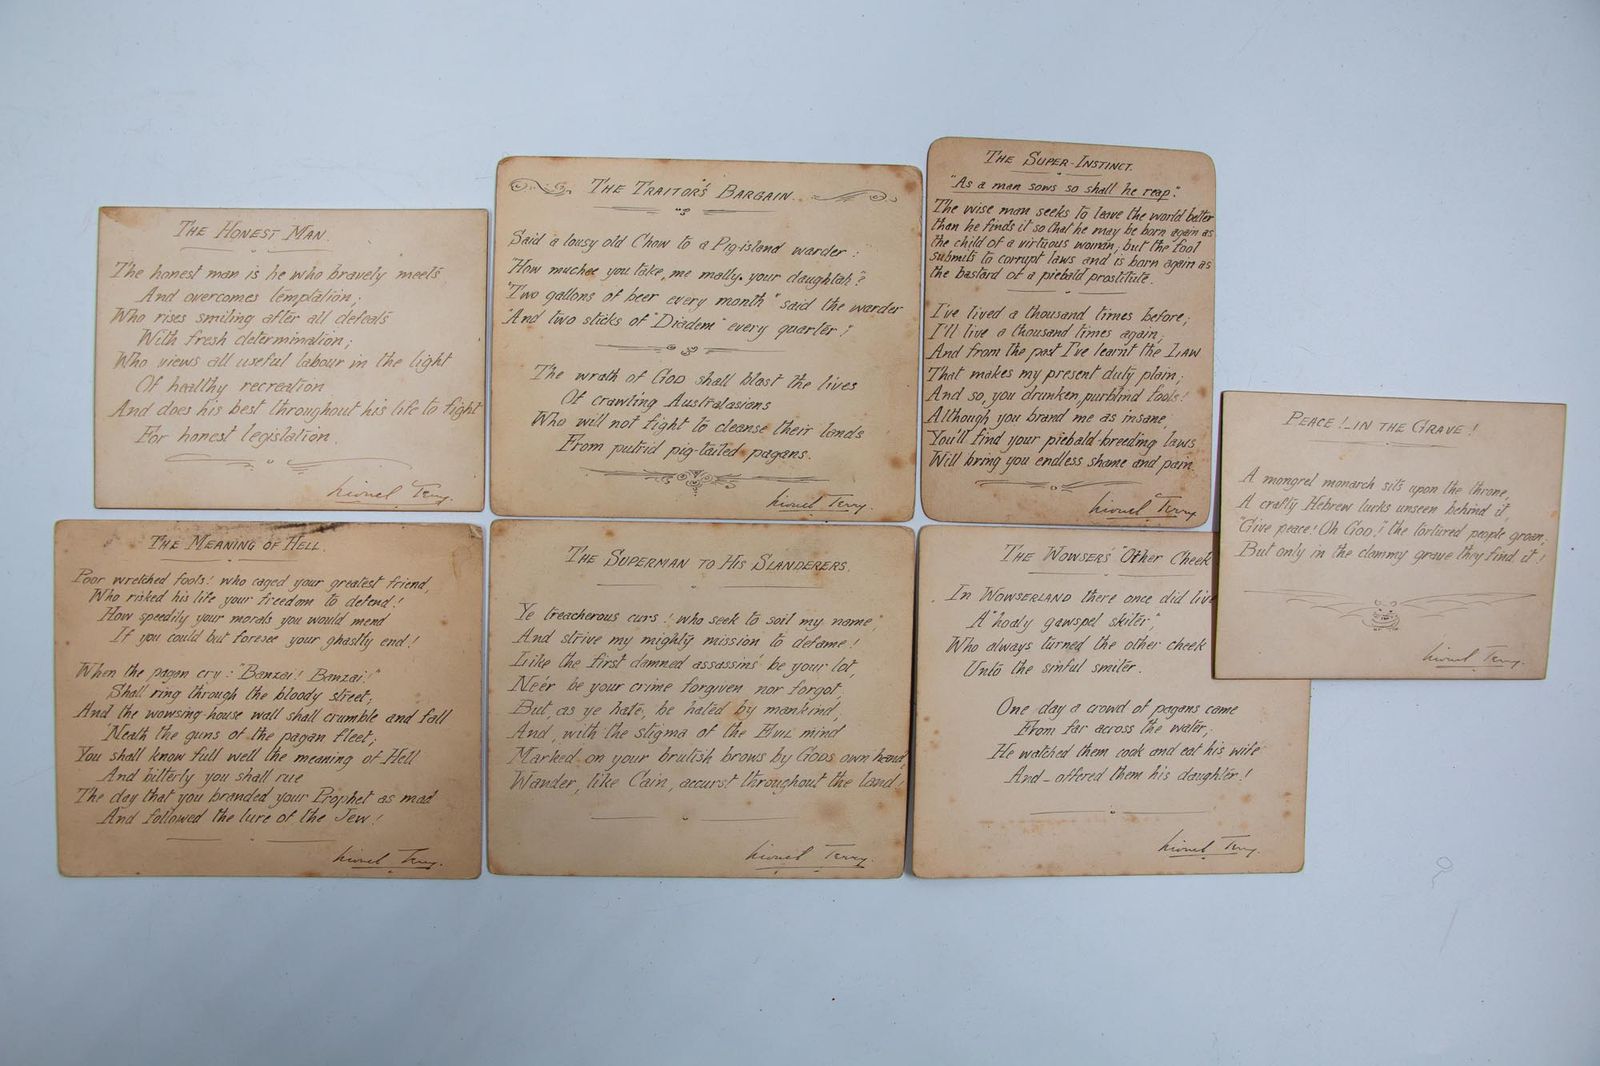 THE HONEST MAN.
The honest man is he who bravely meets
And overcomes temptation;
Who rises smiling after all defeats
With fresh determination;
Who views all useful labour in the light
Of healthy recreation
And does his best throughout his life to fight
For honest legislation.
Lionel Terry.
THE TRAITOR'S BARGAIN.
Said a lousy old Chow to a Pig-island warder:
"How muchee you take, me mally your daughtah?"
"Two gallons of beer every month" said the warder
"And two sticks of "Diadem" every quarter!"
The wrath of GOD shall blast the lives
Of crawling Australasians
Who will not fight to cleanse their lands
From putrid pig-tailed pagans.
Lionel Terry.
THE SUPER-INSTINCT.
"As a man sows so shall he reap."
The wise man seeks to leave the world better
than he finds it so that he may be born again as
the child of a virtuous woman, but the fool
submits to corrupt laws and is born again as
the bastard of a piebald prostitute.
I've lived a thousand times before;
I'll live a thousand times again;
And from the past I've learnt the LAW
That makes my present duty plain;
And so, you drunken, purblind fools!
Although you brand me as insane,
You'll find your piebald breeding laws
Will bring you endless shame and pain.
Lionel Terry.
PEACE!_IN THE GRAVE!
A mongrel monarch sits upon the throne,
A crafty Hebrew lurks unseen behind it,
"Give peace! Oh GOD!" the tortured people groan;
But only in the clammy grave they find it!
Lionel Terry.
THE MEANING OF HELL.
Poor wretched fools! who caged your greatest friend,
Who risked his life your freedom to defend!
How speedily your morals you would mend
If you could but foresee your ghastly end!
When the pagan cry: "Banzai! Banzai!"
Shall ring through the bloody street;
And the wowsing-house wall shall crumble and fall
'Neath the guns of the pagan fleet;
You shall know full well the meaning of Hell
And bitterly you shall rue
The day that you branded your Prophet as mad
And followed the lure of the Jew!
Lionel Terry.
THE SUPERMAN TO HIS SLANDERERS.
Ye treacherous curs! who seek to soil my name,
And strive my mighty mission to defame!
Like the first damned assassins' be your lot,
Ne'er be your crime forgiven nor forgot;
But, as ye hate, be hated by mankind,
And, with the stigma of the EVIL mind
Marked on your brutish brows by GOD'S own hand
Wander, like Cain, accurst throughout the land!
Lionel Terry.
THE WOWSER'S "OTHER CHEEK
In WOWSERLAND there once did live
A "hooly gawspel skiter",
Who always turned the other cheek
Unto the sinful smiter.
One day a crowd of pagans came
From far across the water;
He watched them cook and eat his wife
And_offered them his daughter!
Lionel Terry.